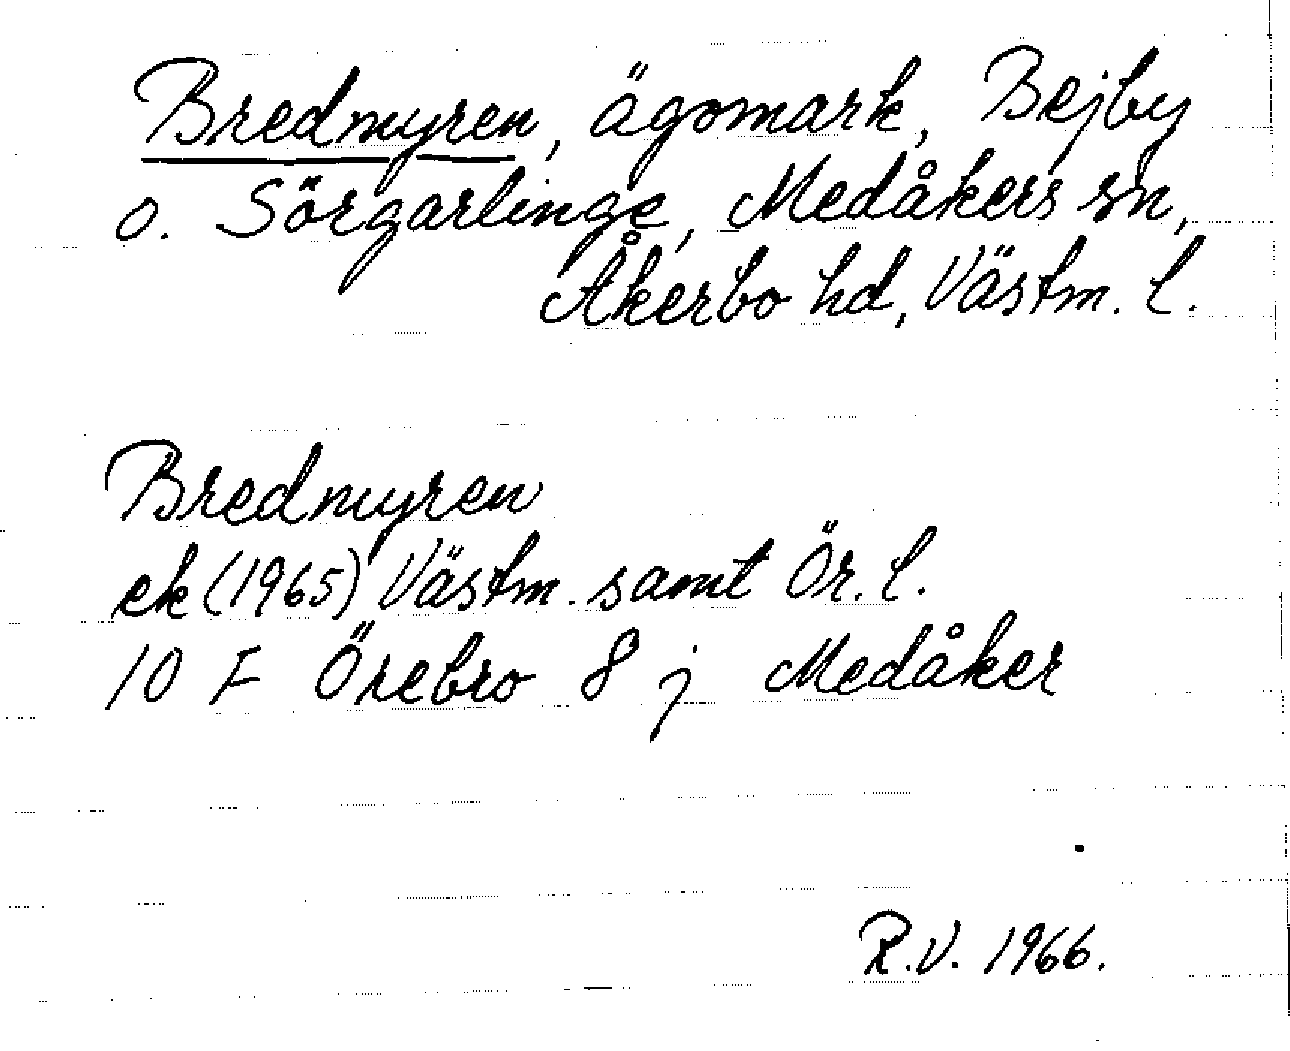 Bredmyren, ägomark, Bejby
o. Sörgarlinge, Medåkers sn,
Åkerbo hd, Västm. l.
Bredmyren
ek (1965) Västm. samt Ör. l.
10 F Örebro 8 j Medåker
R.V. 1966.